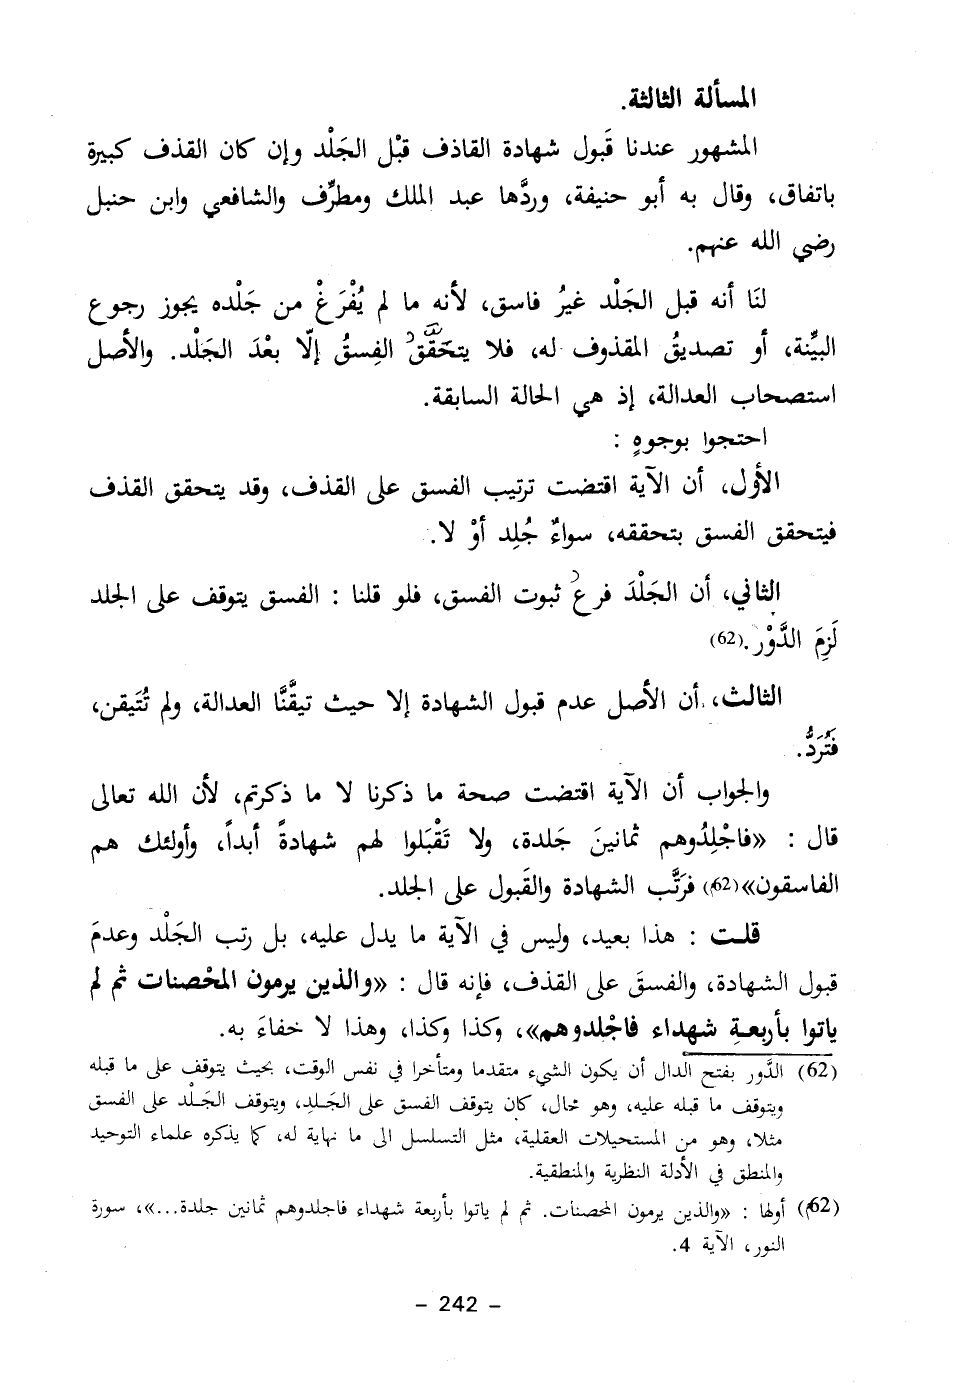 المسألة الثالثة.
المشهور عندنا قَبول شهادة القاذف قبْل الجَلْد وإن كان القذف كبيرة
باتفاق، وقال به أبو حنيفة، وردَّها عبد الملك ومطرِّف والشافعي وابن حنبل
رضي الله عنهم.
لنَا أنه قبل الجَلْد غيرُ فاسق، لأنه ما لم يُفْرَغْ من جَلْده يجوز رجوع
البيِّنة، أو تصديقُ المقذوف له، فلا يتحَقَّق الفِسقُ إلّا بعْدَ الجَلْد. والأصل
استصحاب العدالة، إذ هي الحالة السابقة.
احتجوا بوجوهٍ :
الأول، أن الآية اقتضت ترتيب الفسق على القذف، وقد يتحقق القذف
فيتحقق الفسق بتحققه، سواءٌ جُلِد أوْ لا.
الثاني، أن الجَلْدَ فرعُ ثبوت الفسق، فلو قلنا : الفسق يتوقف على الجلد
لَزِمَ الدَّوْر.(62)
الثالث، أن الأصل عدم قبول الشهادة إلا حيث تيقَّنَّا العدالة، ولم تُتَيقن،
فَتُرَدُّ.
والجواب أن الآية اقتضت صحة ما ذكرنا لا ما ذكرتم، لأن الله تعالى
قال : «فاجْلِدُوهم ثمانينَ جَلدة، ولا تَقْبَلوا لهم شهادةً أبداً، وأولئك هم
الفاسقون»(62م) فرَتَّب الشهادة والقَبول على الجلد.
قلت : هذا بعيد، وليس في الآية ما يدل عليه، بل رتب الجَلْد وعدمَ
قبول الشهادة، والفسقَ على القذف، فإنه قال : «والذين يرمون المحْصنات ثم لم
ياتوا بأربعـةِ شهداء فاجْلدوهم»، وكذا وكذا، وهذا لا خفاءَ به.
(62) الدَّور بفتح الدال أن يكون الشيء متقدما ومتأخرا في نفس الوقت، بحيث يتوقف على ما قبله
ويتوقف ما قبله عليه، وهو محال، كان يتوقف الفسق على الجَـلـد، ويتوقف الجَـلْد على الفسق
مثلا، وهو من المستحيلات العقلية، مثل التسلسل الى ما نهاية له، كما يذكره علماء التوحيد
والمنطق في الأدلة النظرية والمنطقية.
(62م) أولها : «والذين يرمون المحصنات. ثم لم ياتوا بأربعة شهداء فاجلدوهم ثمانين جلدة...»، سورة
النور، الآية 4.
– 242 –